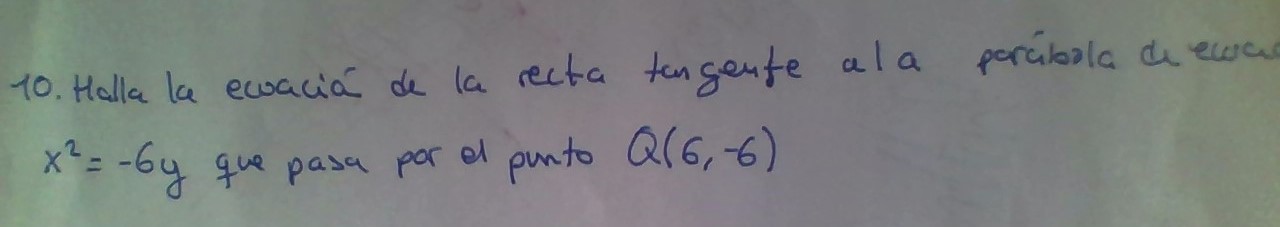 10. Halla la ecuaciá de la recta tangente a la parábola de ecuac
x² = -6y que pasa por el punto Q(6,-6)